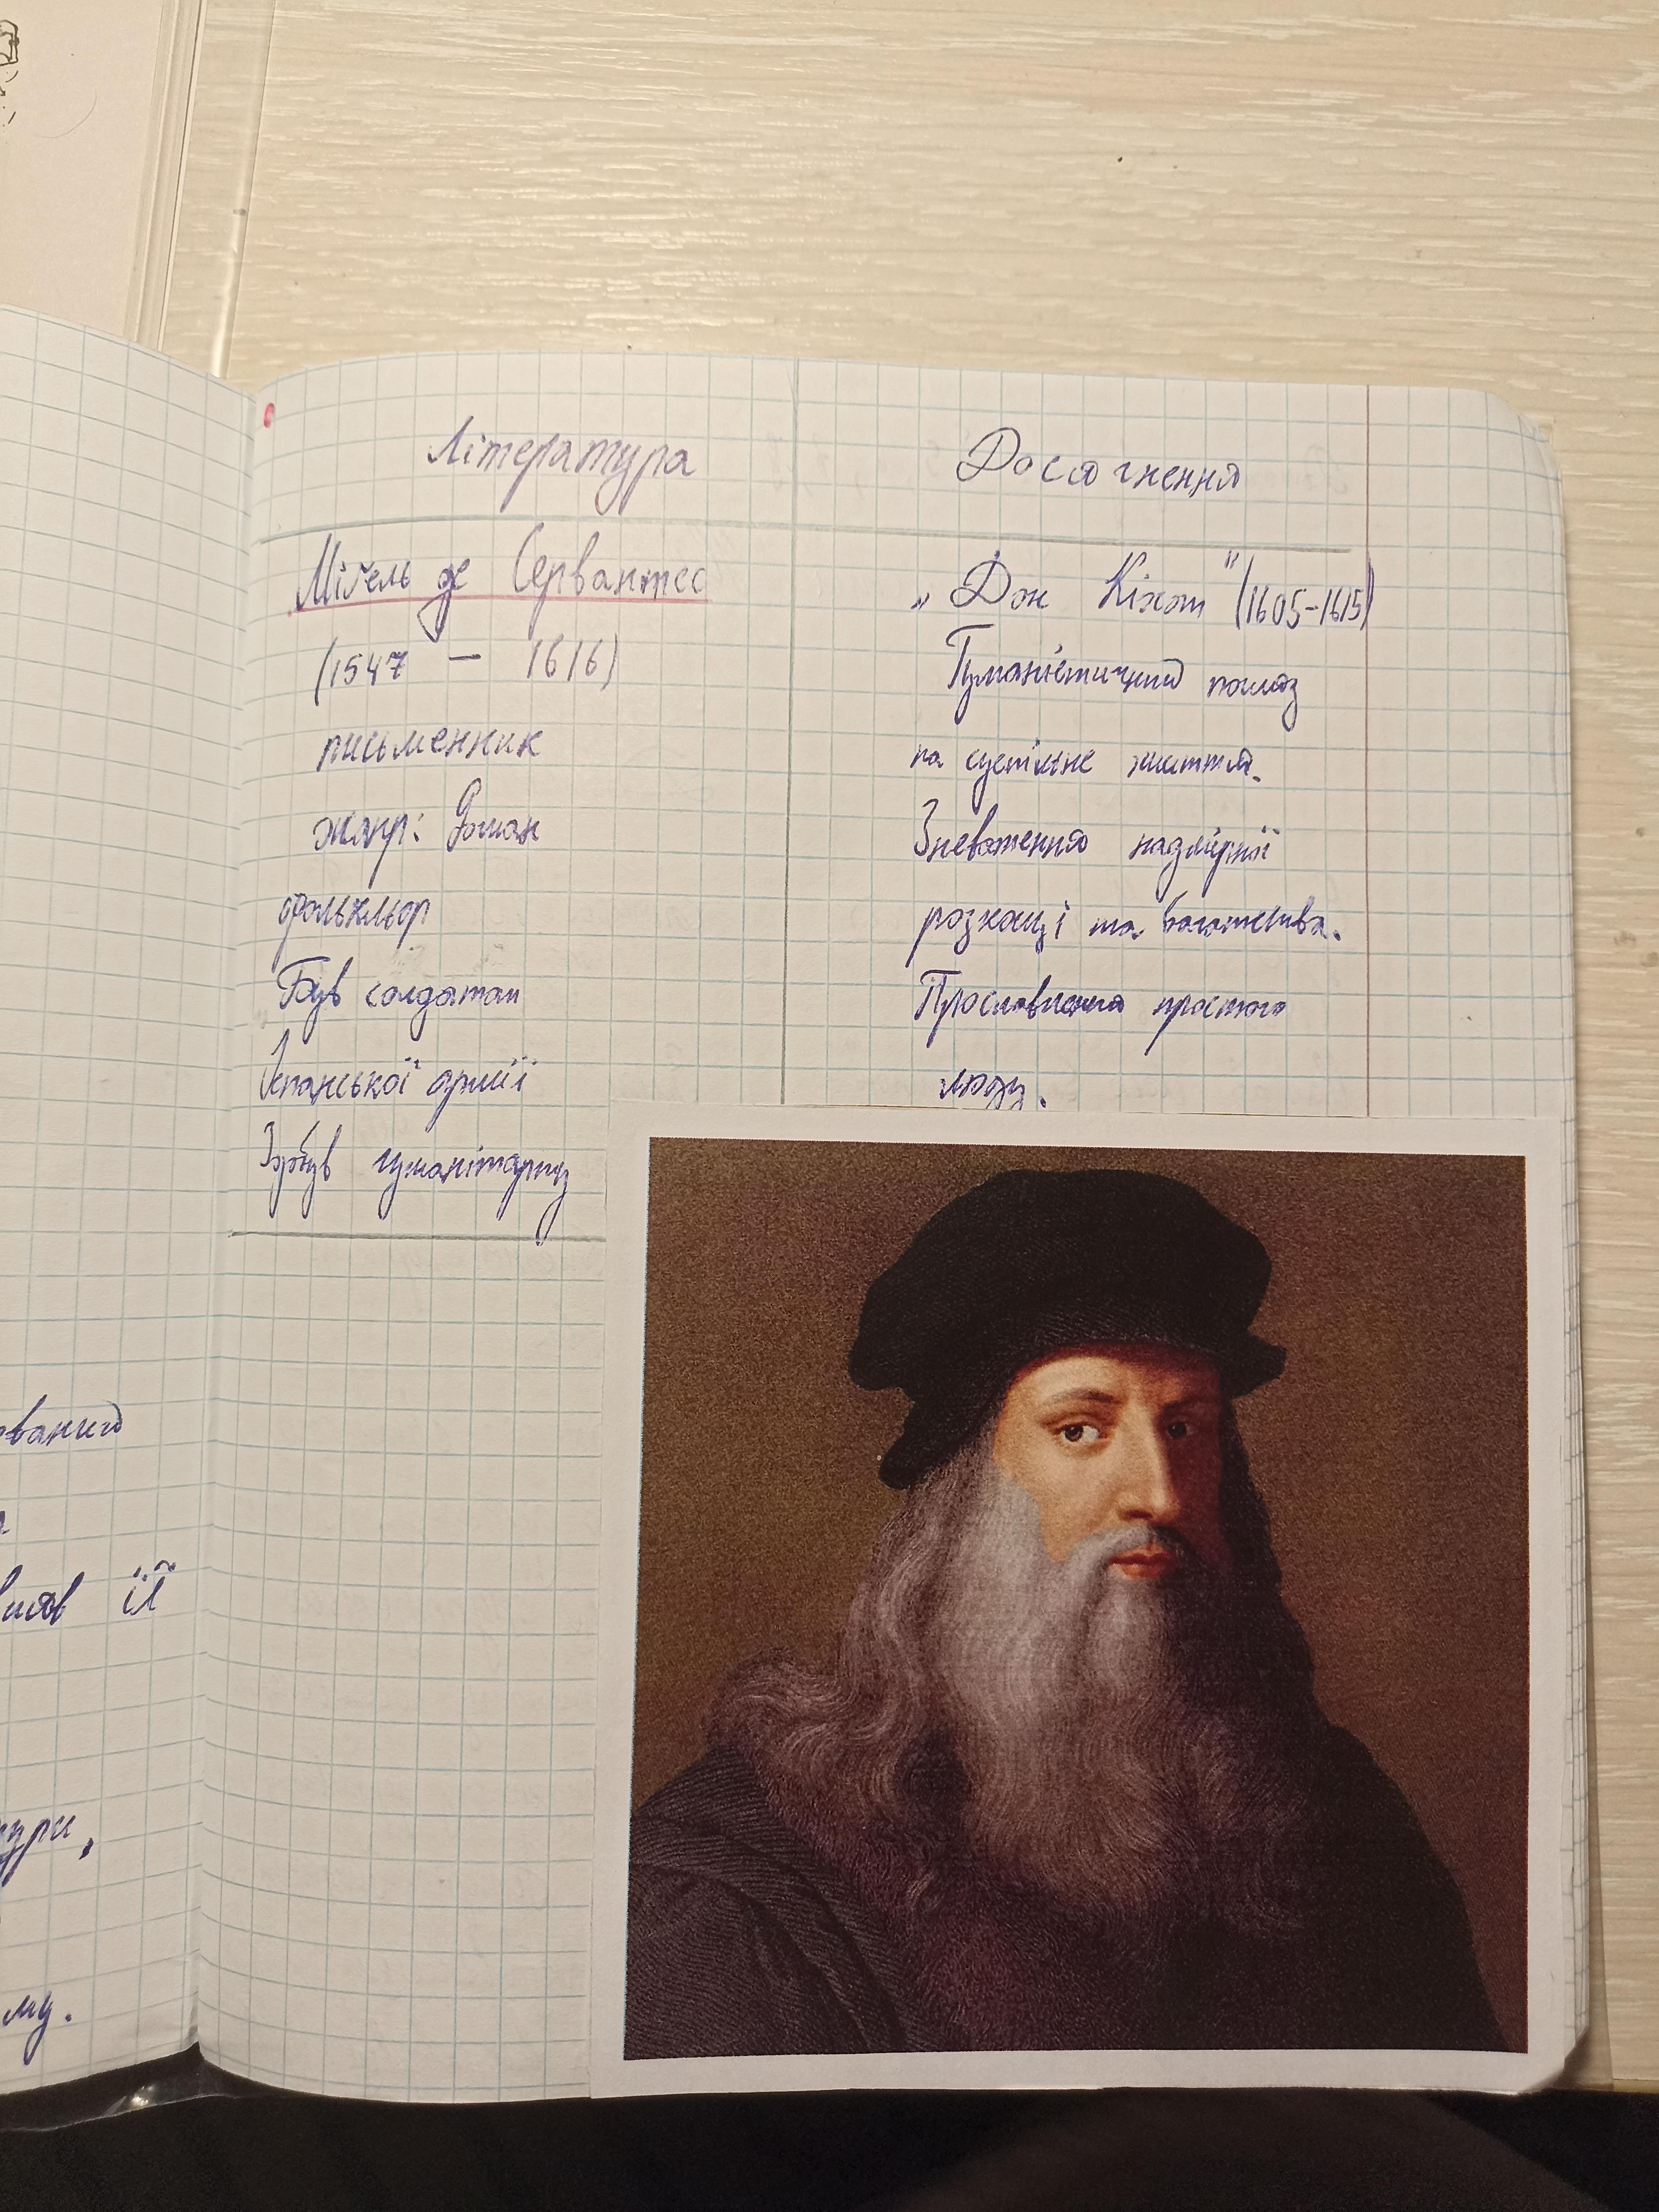 Література
Досягнення
Мігель де Сервантес
(1547 – 1616)
письменник
жанр: Роман
фольклор
Був солдатом
Іспанської армії
Здобув гуманітарну
„Дон Кіхот" (1605-1615)
Гуманістичний погляд
на суспільне життя.
Зневаження надмірної
розкоші та багатства.
Прославлення простого
люду.
її